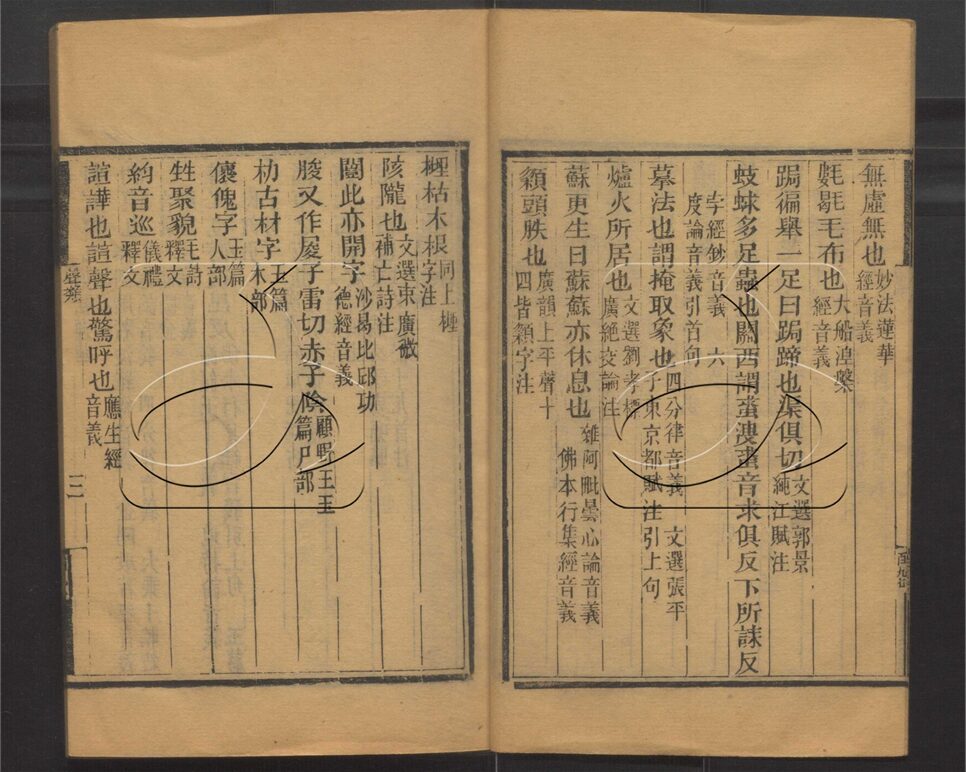 無虛無也妙法蓮華經音義
氀毼毛布也大船湼槃經音義
跼偏舉一足曰跼蹄也渠俱切文選郭景純江賦注
蚑蛷多足蟲也關西謂蛗溲蛗音求俱反下所誄反
字經鈔音義 六度論音義引首句
摹法也謂掩取象也四分律音義 文選張平子東京都賦注引上句
爐火所居也文選劉孝標廣絶交論注
蘇更生曰蘇蘇亦休息也雜阿毗曇心論音義 佛本行集經音義
頛頭䏢也廣韻上平聲十四皆頛字注
榸枯木根字注同上榸
陔隴也文選束廣微補亡詩注
闓此亦開字沙曷比邱功德經音義
朘又作㞘子雷切赤子陰顧野王玉篇尸部
朸古材字玉篇木部
儴傀字玉篇人部
甡聚貌毛詩釋文
絇音巡儀禮釋文
諠譁也諠聲也驚呼也應生經音義
聲類
三